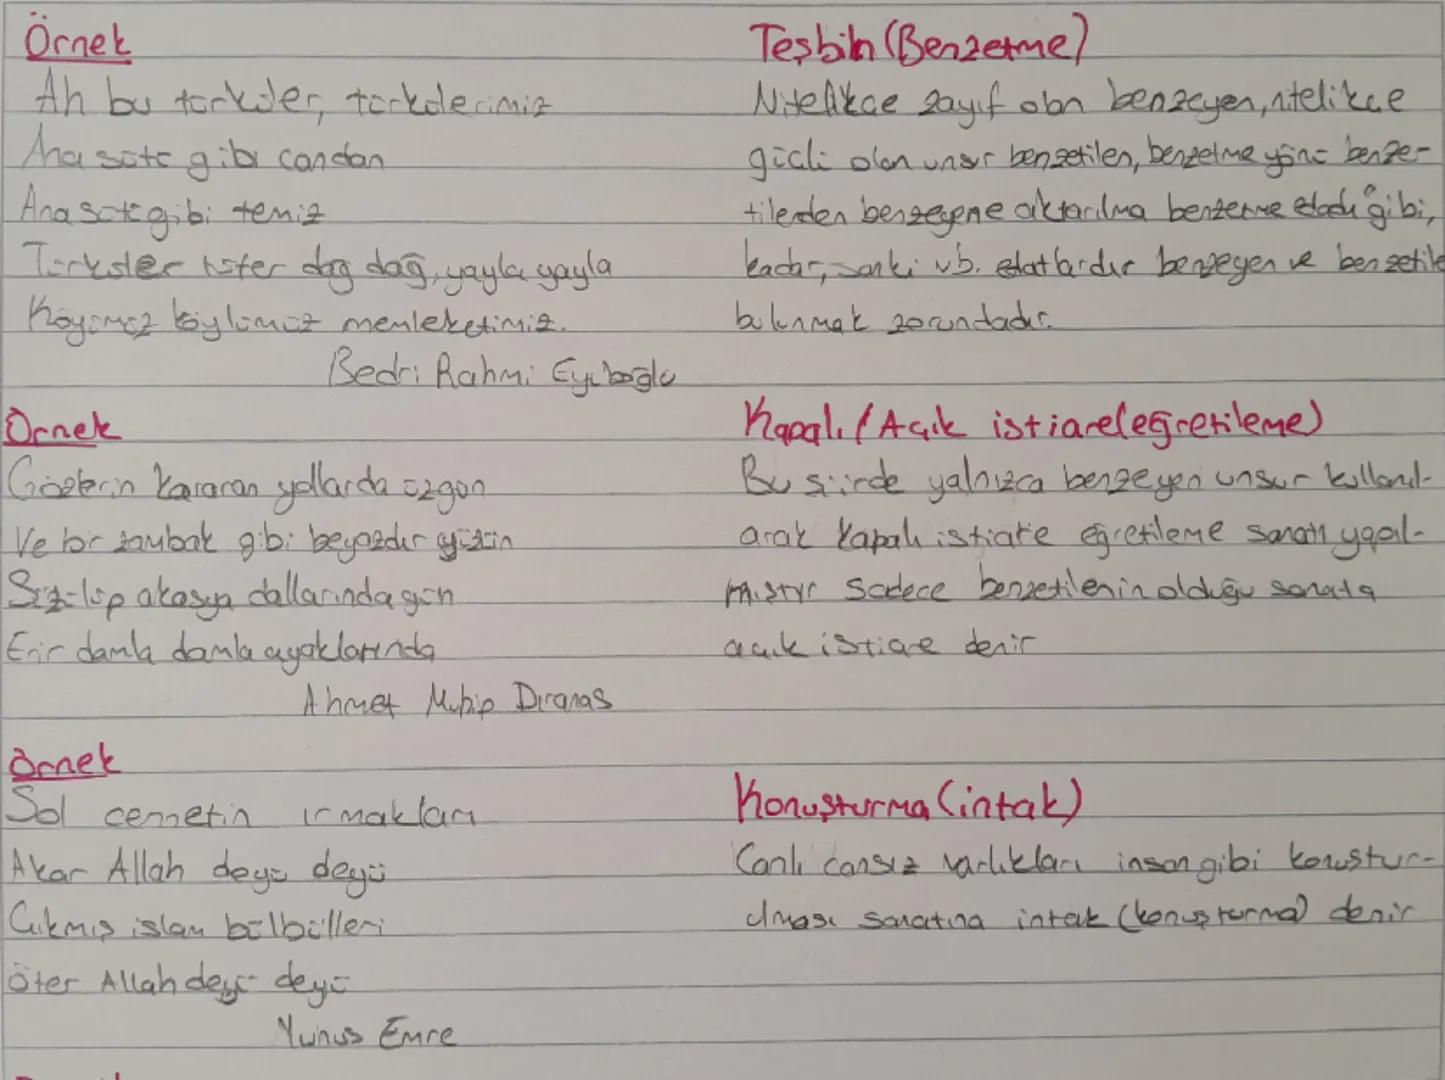 Örnek
Ah bu türküler, türkülerimiz
Ana sütü gibi candan
Ana sütü gibi temiz
Türküler ister dağ dağ, yayla yayla
Köyümüz köylümüz memleketimiz.
Bedri Rahmi Eyüboğlu
Teşbih (Benzetme)
Nitelikçe zayıf olan benzeyen, nitelikçe
güçlü olan unsur benzetilen, benzetme yönü benze-
tilenden benzeyene aktarılma benzetme edatı gibi,
kadar, sanki vb. edatlardır benzeyen ve benzetile
bulunmak zorundadır.
Örnek
Gözlerin kararan yollarda üzgün
Ve bir zambak gibi beyazdır yüzün
Süzülüp akasya dallarında gün
Erir damla damla ayaklarında
Ahmet Muhip Dıranas
Kapalı / Açık istiare(eğretileme)
Bu şiirde yalnızca benzeyen unsur kullanıl-
arak kapalı istiare eğretileme sanatı yapıl-
mıştır sadece benzetilenin olduğu sanata
açık istiare denir
Örnek
Şol cennetin ırmakları
Akar Allah deyü deyü
Çıkmış islam bülbülleri
Öter Allah deyü deyü
Yunus Emre
Konuşturma (intak)
Canlı cansız varlıkları insan gibi konuştur-
ulması sanatına intak (konuşturma) denir